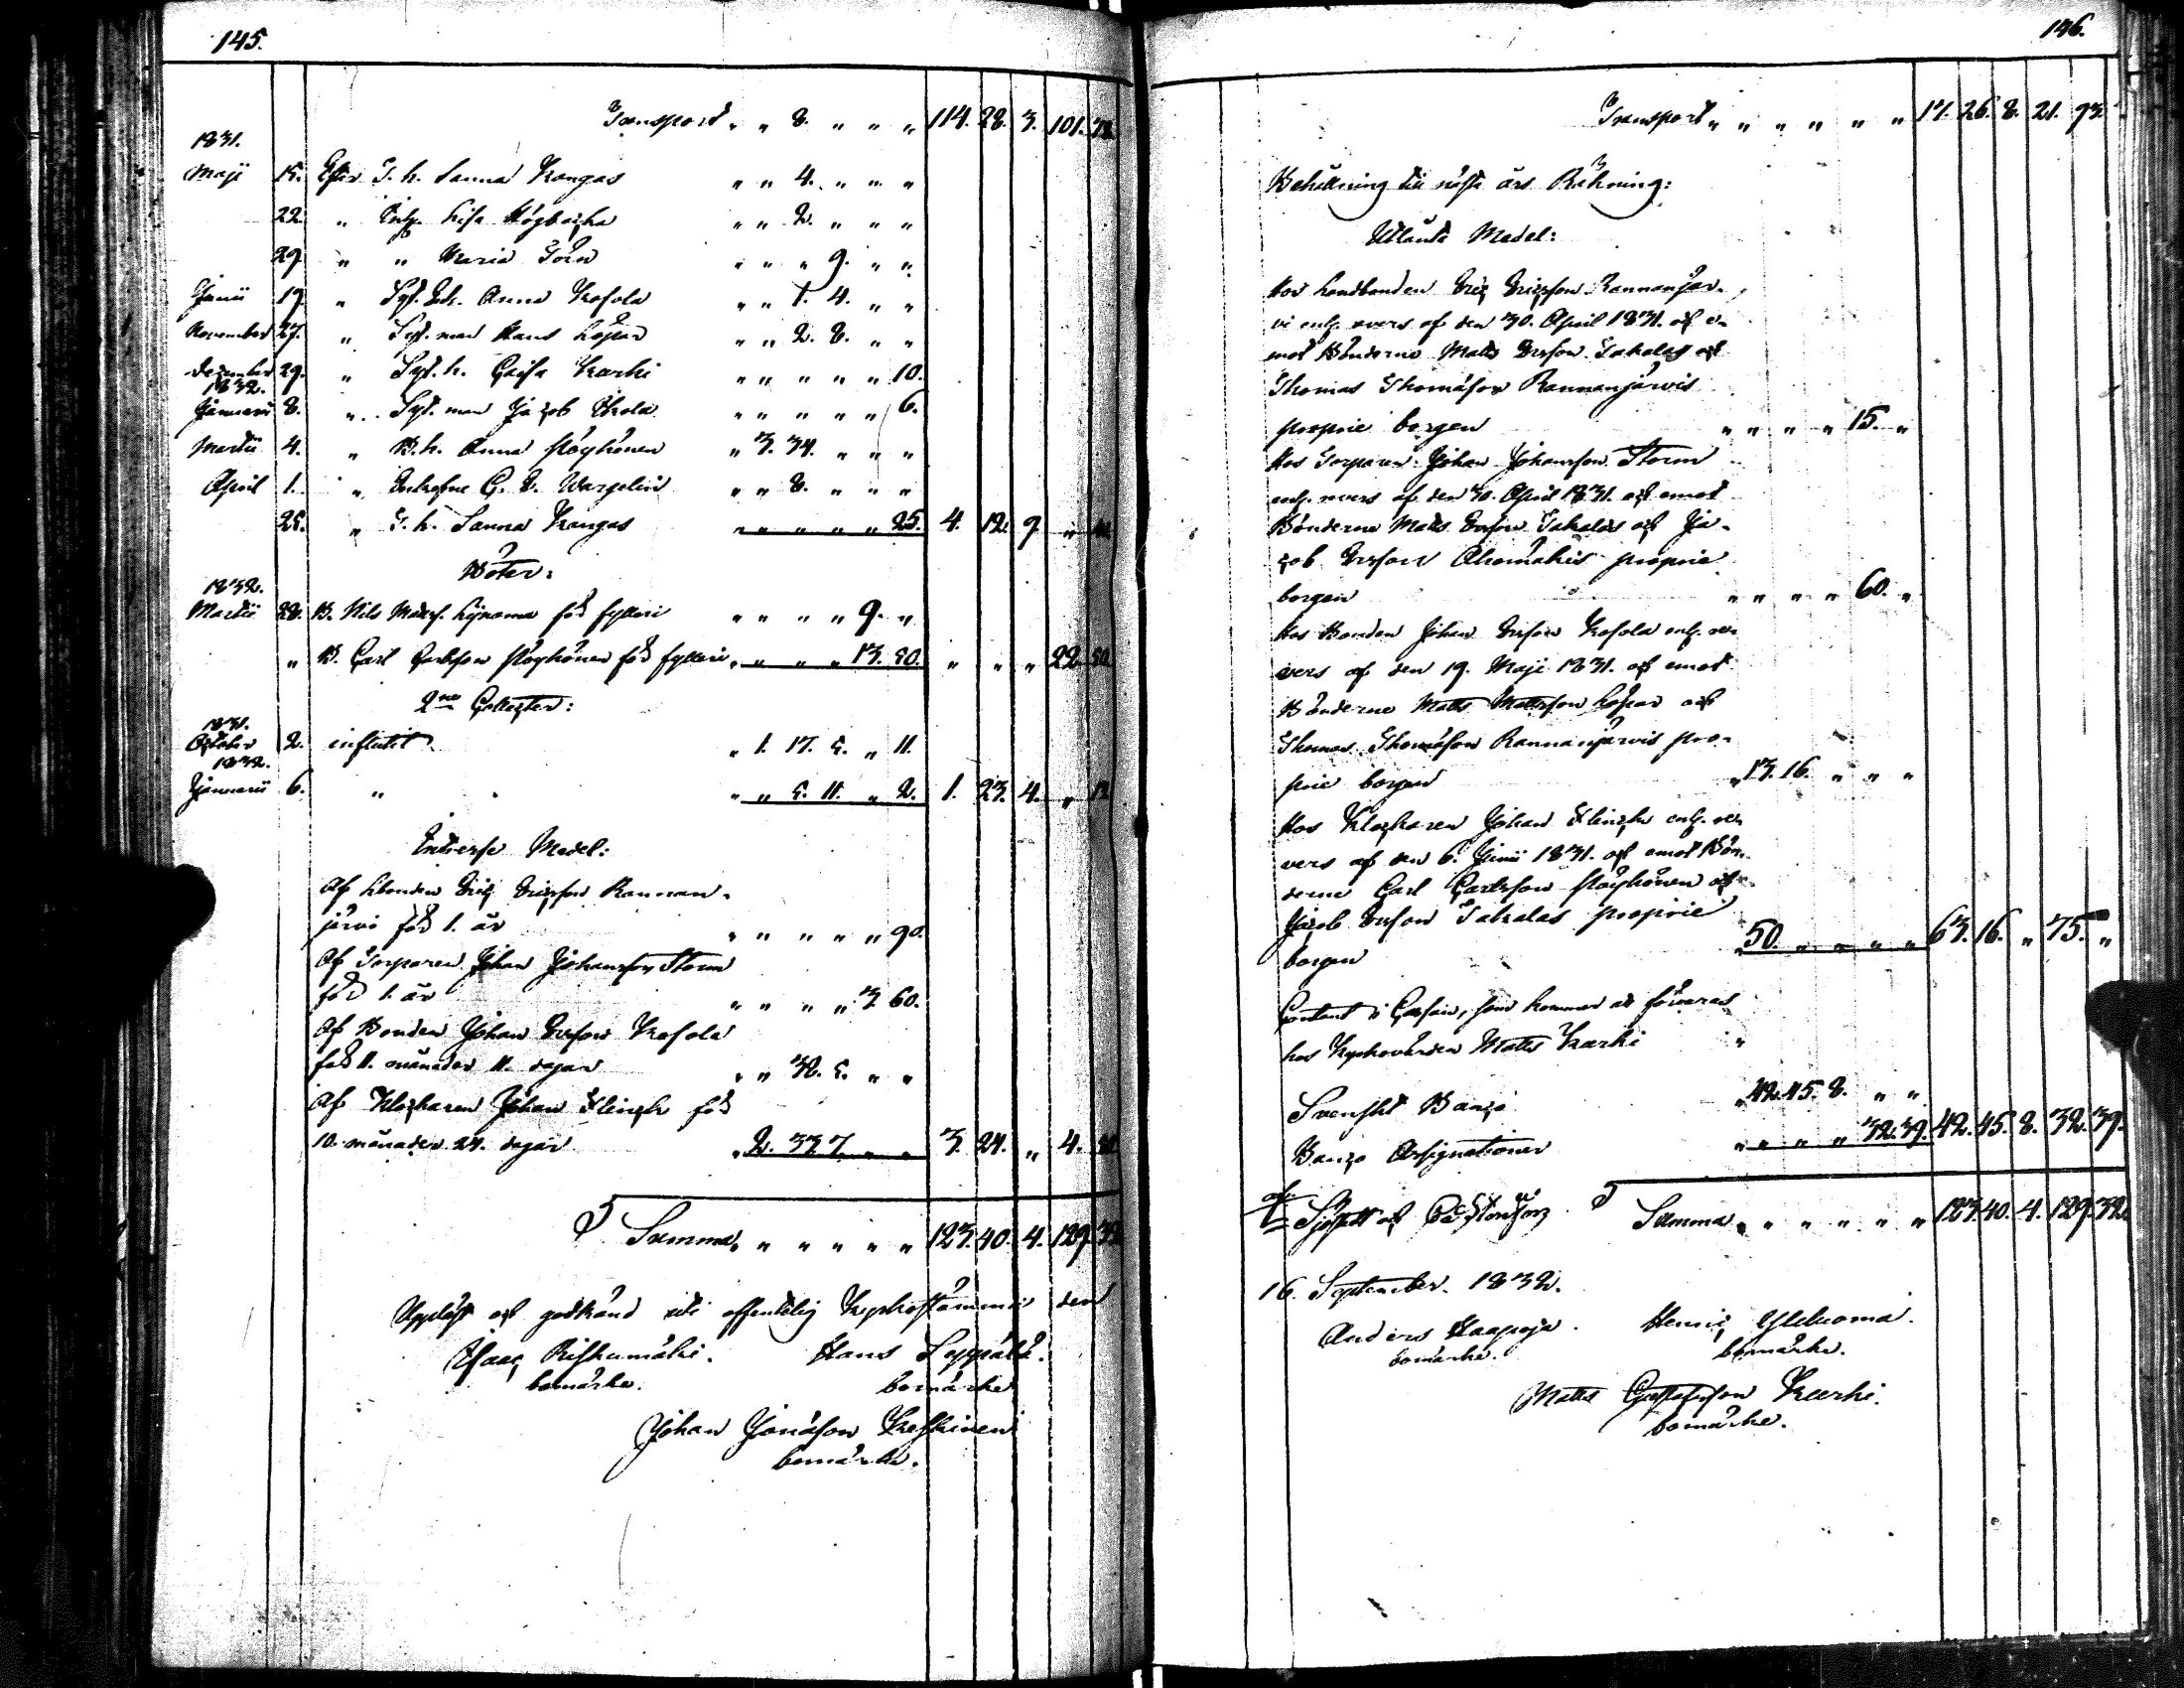 145.
Transport „ „ 8. „ „ „ 114. 28. 3. 101.
1831.
Maji 15. Efter I. h. Sanna Kangas „ „ 4. „ „ „
22. „ Enk. Lisa Högbacka „ „ 2. „ „ „
29. „ „ Maria „ „ „ 9. „ „
Junii 19. „ Syt. Enk. Anna Kosola „ „ 1. 4. „ „
November 27. „ Syt. man Hans „ „ 2. 8. „ „
December 29. „ Syt. h. Caisa Karhi „ „ „ „ „ 10.
1832.
Januarii 8. „ Syt. man Jacob „ „ „ „ „ 6.
Martii 4. „ B. h. Anna Pöyhönen „ 3. 34. „ „ „
April 1. „ C. Wargelin „ „ 8. „ „ „
25. „ I. h. Sanna Kangas „ „ „ „ „ 25. 4. 12. 9 „
Böter:
1832.
Martii 28. B. Nils Matss. för fylleri „ „ „ „ 9. „
„ B. Carl Carlsson Pöyhönen för fylleri „ „ „ „ 13. 50. „ „ „ 22. 50.
2ne Collecter:
1831.
October 2. influtit „ 1. 17. 5. „ 11.
1832.
Januarii 6. „ „ „ 5. 11. „ 2. 1. 23. 4. „ 13
Intresse Medel:
Af Lbonden Eric Ericsson Rannan-
järvi för 1. år „ „ „ „ „ 90.
Af Torparen Johan Johansson Storm
för 1. år „ „ „ „ 3. 60.
Af Bonden Johan Ersson Kosola
för 11. månader 11. dagar „ „ 32. 5. „ „
Af Klockaren Johan Flinck för
10. månader 24. dagar „ 2. 33. 7. „ „ 3. 24. „ 4. 50.
Summa „ „ „ „ „ „ 123. 40. 4. 129. 32
Uppläst och godkänd uti offentelig Kyrkostämma den
Isaac Riskumäki. Hans Seppälä.
bomärke. bomärke
Johan Jonasson Keskinen
bomärke.
146.
Transport „ „ „ „ „ „ 17. 26. 8. 21. 93.
Behållning till nästa års Räkning:
Utlånta Medel:
Hos Landbonden Eric Ericsson Rannanjär-
vi enl. revers af den 30. April 1831. och e-
mot Bönderne Matts Ersson Takalas och
Thomas Thomasson Rannanjärvis
proprie borgen „ „ „ „ 15. „
Hos Torparen Johan Johansson Storm
enl. revers af den 30. April 1831. och emot
Bönderne Matts Ersson Takalas och Ja-
cob Ersson Ahomäkis proprie
borgen „ „ „ „ 60. „
Hos Bonden Johan Ersson Kosola enl. re-
vers af den 19. Maji 1831. och emot
Bönderne Matts Mattsson och
Thomas Thomasson Rannanjärvis pro-
prie borgen „ 13. 16. „ „ „
Hos Klockaren Johan Flinck enl. re-
vers af den 6. Junii 1831. och emot Bön-
derne Carl Carlsson Pöyhönen och
Jacob Ersson Takalas proprie
borgen „ 50. „ „ „ „ 63. 16. „ 75. „
Contant i Cassan, som kommer att förvaras
hos Kyrkovärden Matts Karhi „
Svenskt Banco „ 42. 45. 8. „ „
Banco Assignationer „ „ „ „ 32. 39. 42. 45. 8. 32. 39.
Summa „ „ „ „ „ „ 123. 40. 4. 129. 32.
16. September 1832.
Anders Haapoja. Henric Yliluoma.
bomärke. bomärke.
Matts Gustafsson Karhi.
bomärke.